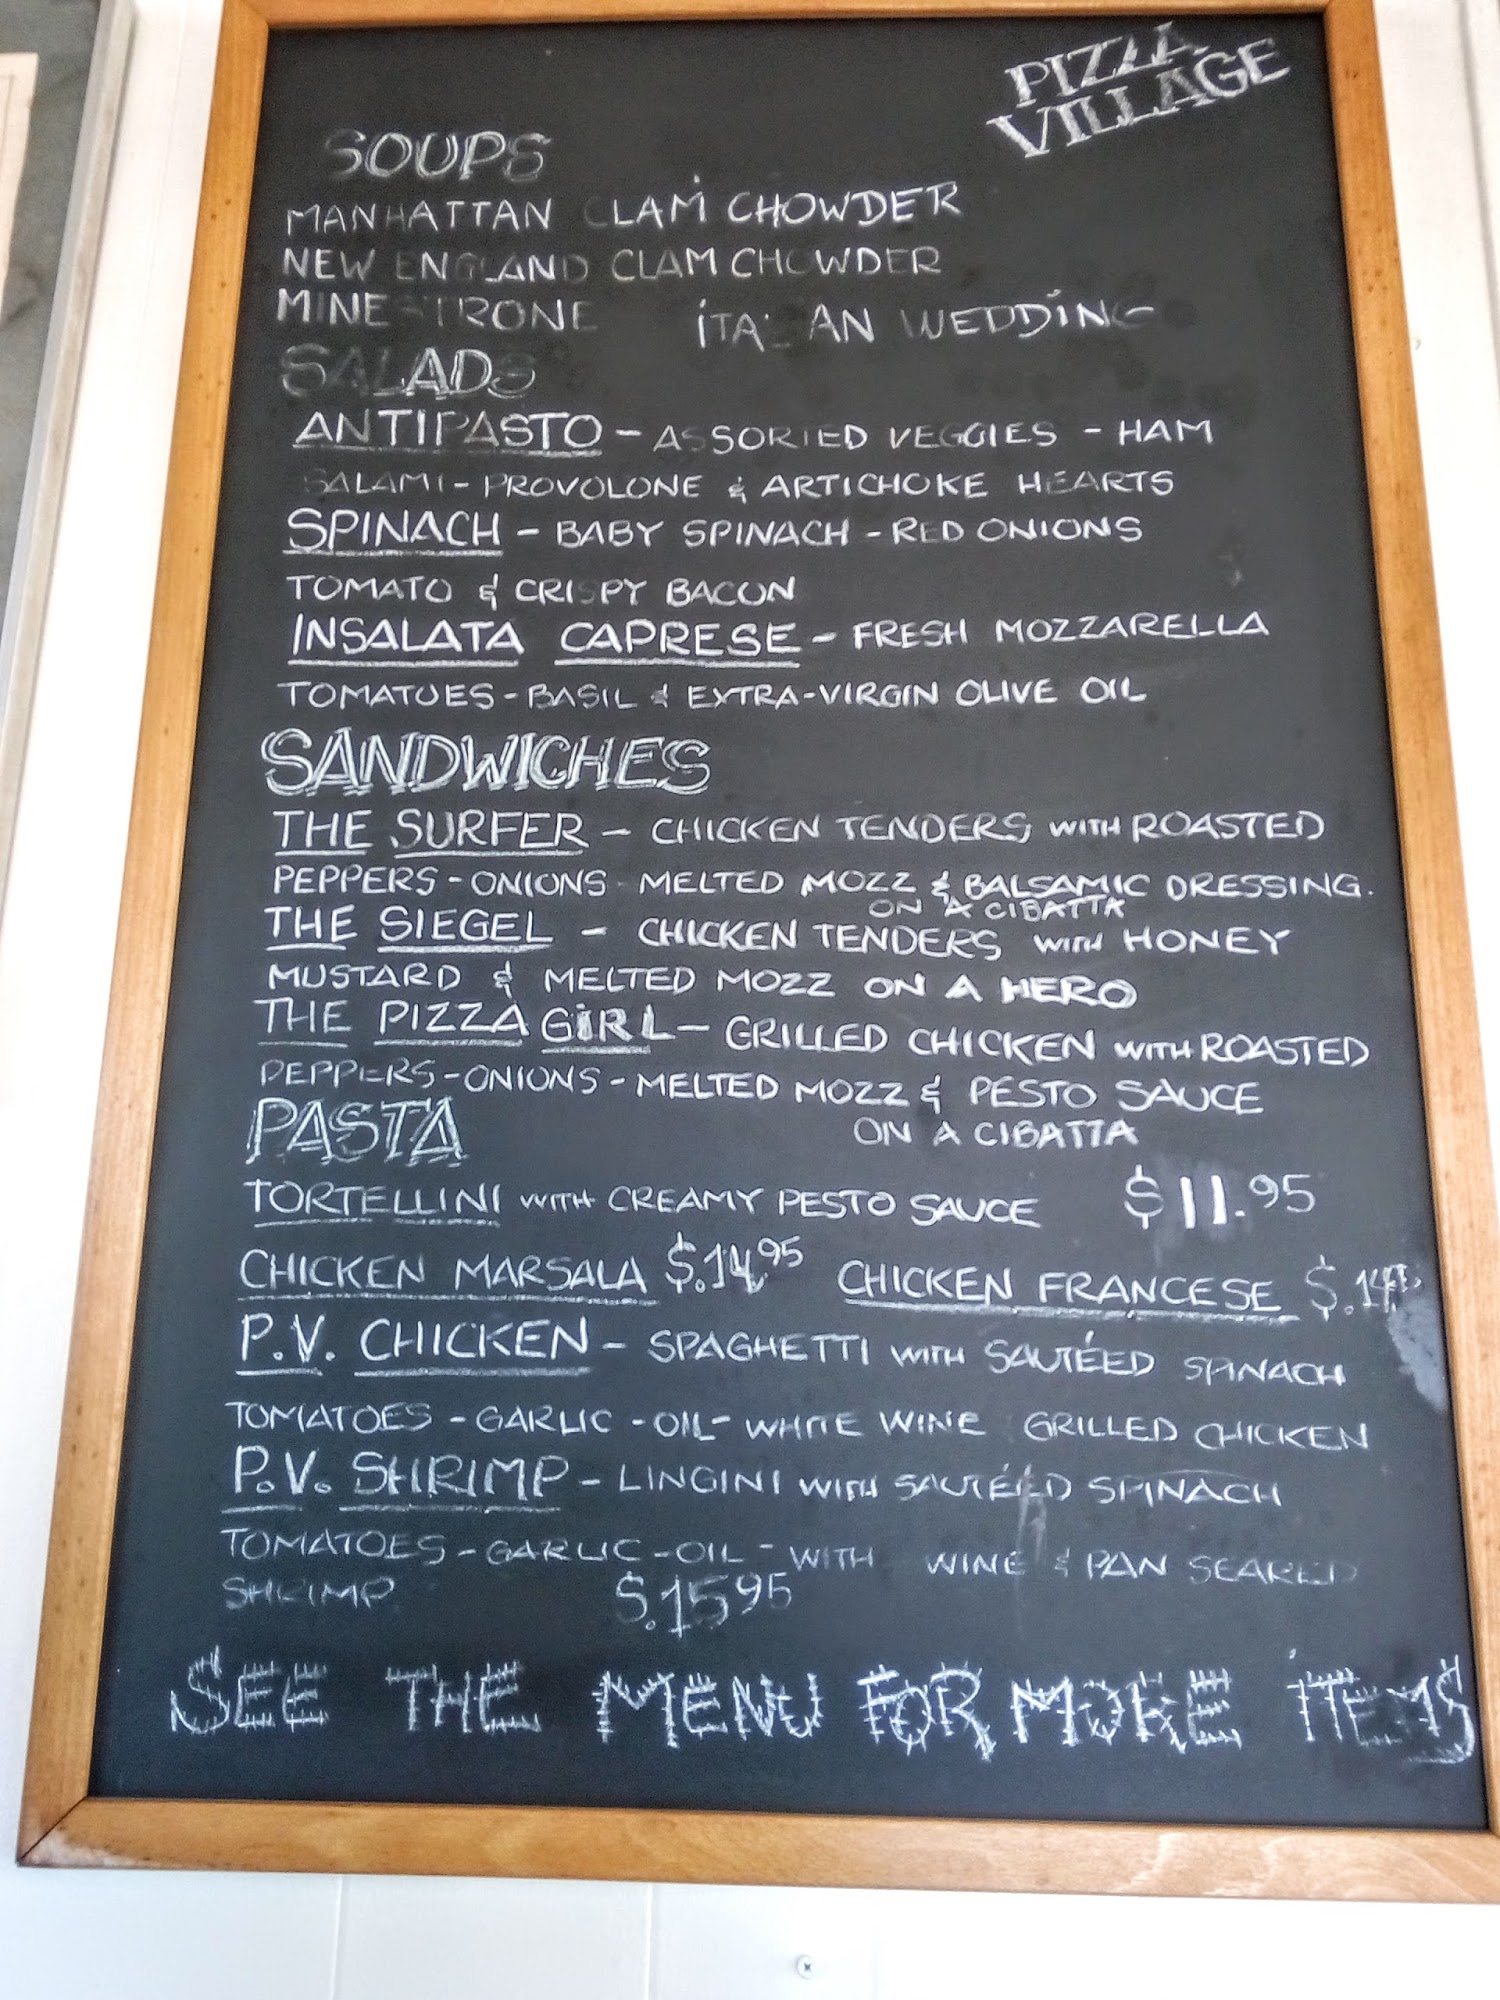 PIZZA
VILLAGE
SOUPS
MANHATTAN CLAM CHOWDER
NEW ENGLAND CLAM CHOWDER
MINESTRONE ITALIAN WEDDING
SALADS
ANTIPASTO - ASSORTED VEGGIES - HAM
SALAMI - PROVOLONE & ARTICHOKE HEARTS
SPINACH - BABY SPINACH - RED ONIONS
TOMATO & CRISPY BACON
INSALATA CAPRESE - FRESH MOZZARELLA
TOMATOES - BASIL & EXTRA-VIRGIN OLIVE OIL
SANDWICHES
THE SURFER - CHICKEN TENDERS WITH ROASTED
PEPPERS - ONIONS - MELTED MOZZ & BALSAMIC DRESSING.
ON A CIBATTA
THE SIEGEL - CHICKEN TENDERS WITH HONEY
MUSTARD & MELTED MOZZ ON A HERO
THE PIZZA GIRL - GRILLED CHICKEN WITH ROASTED
PEPPERS - ONIONS - MELTED MOZZ & PESTO SAUCE
ON A CIBATTA
PASTA
TORTELLINI WITH CREAMY PESTO SAUCE $11.95
CHICKEN MARSALA $.14.95 CHICKEN FRANCESE
P.V. CHICKEN - SPAGHETTI WITH SAUTÉED SPINACH
TOMATOES - GARLIC - OIL - WHITE WINE GRILLED CHICKEN
P.V. SHRIMP - LINGINI WITH SAUTÉED SPINACH
TOMATOES - GARLIC - OIL - WITH WINE & PAN SEARED
SHRIMP $.15 95
SEE THE MENU FOR MORE ITEMS